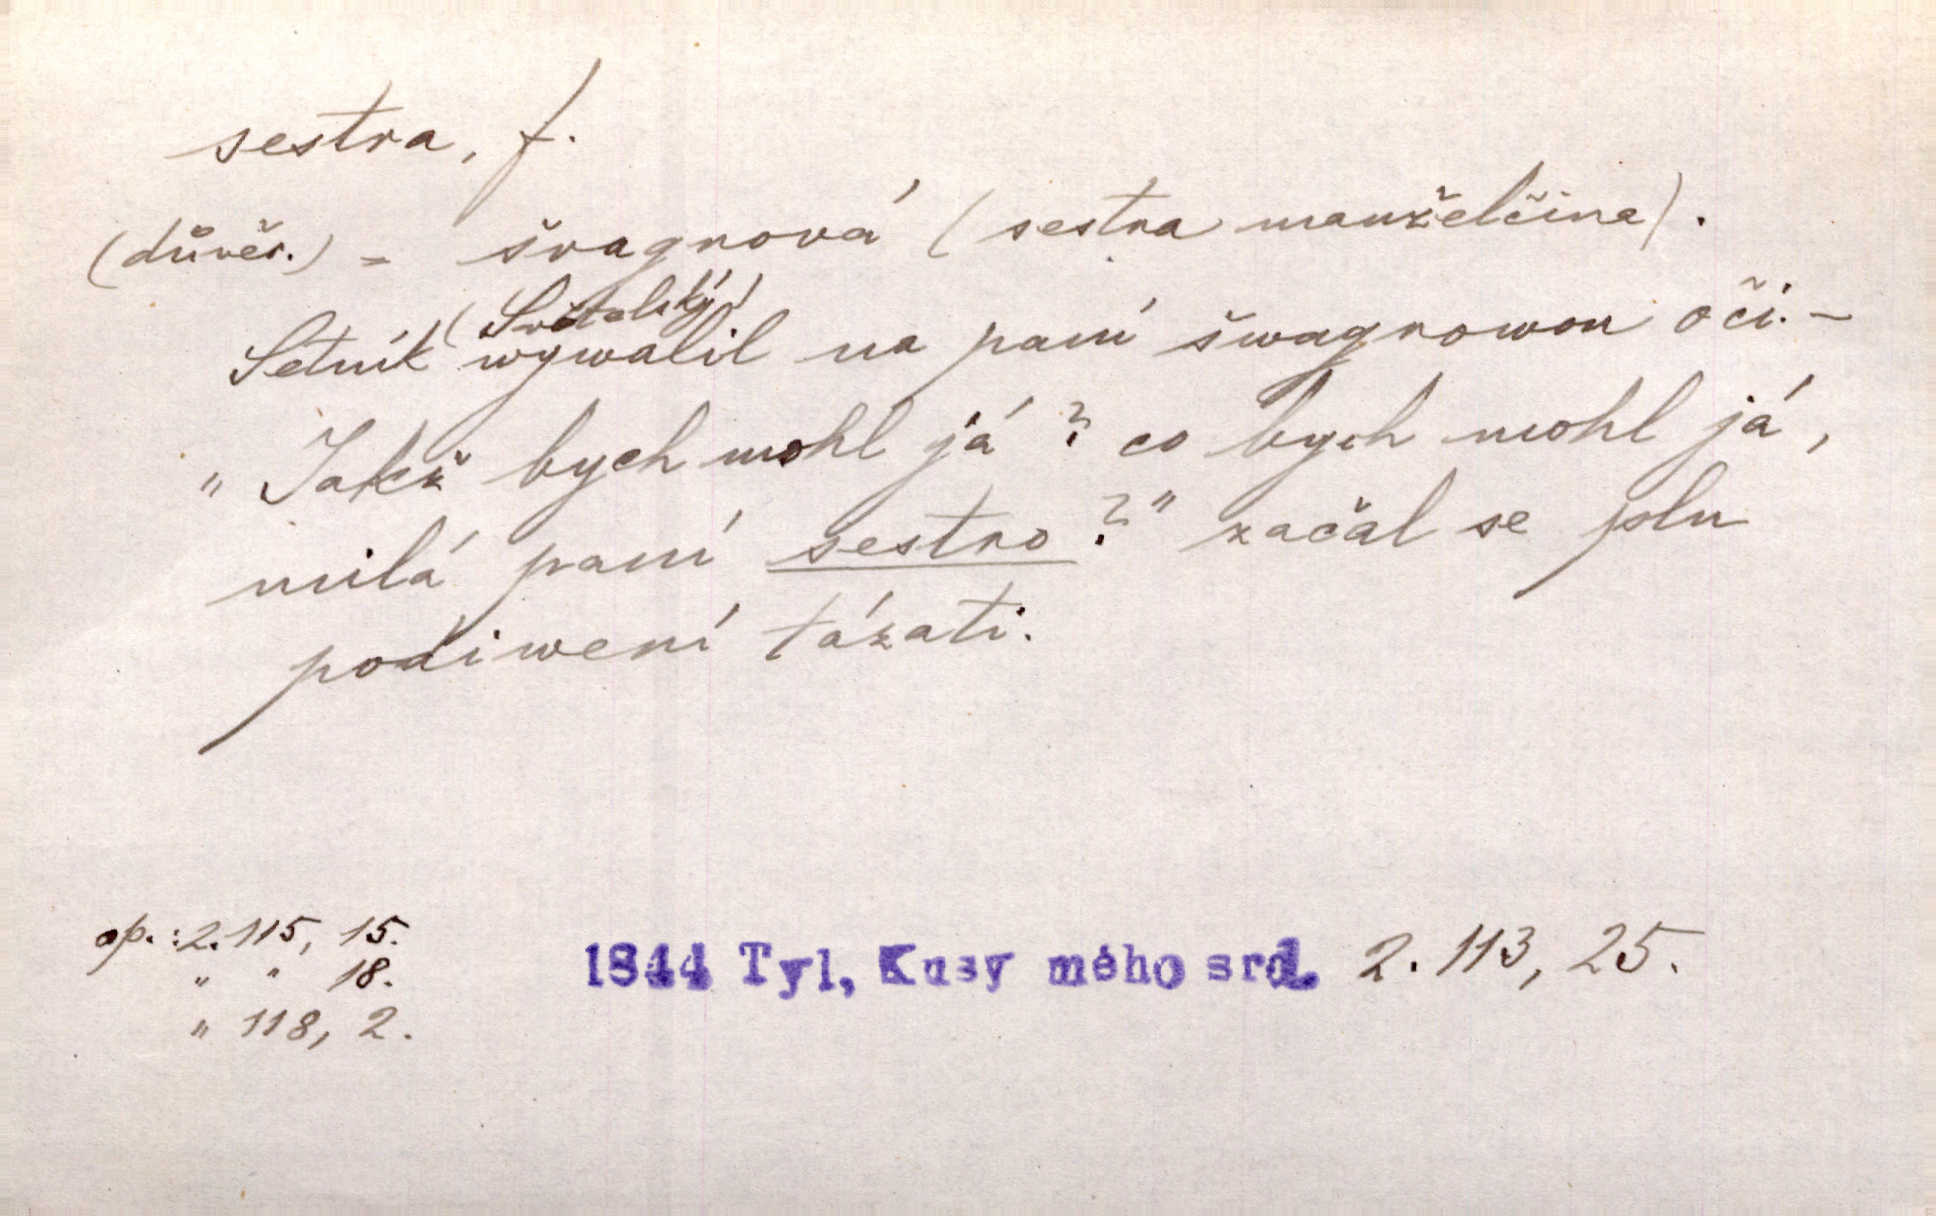 sestra, f.
(důvěr.) = švagrová (sestra manželčina).
(Světelský)
Setník wywalil na paní šwagrowou oči. –
„Jakž bych mohl já? co bych mohl já,
milá paní sestro?" začal se plu
podiwení tázati.
op.: 2. 115, 15.
" " 18.
" 118, 2.
1844 Tyl, Kusy mého srd. 2. 113, 25.